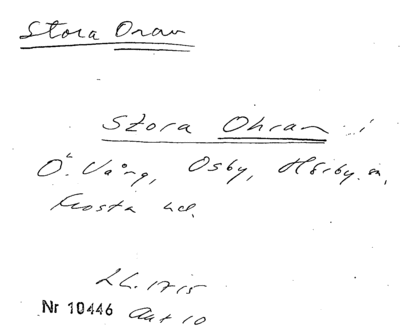 Stora Oran
Stora Ohran i
Ö. Vång, Osby, Hörby sn,
Frosta hd.
LL. 1715
Nr 10446 Akt 10